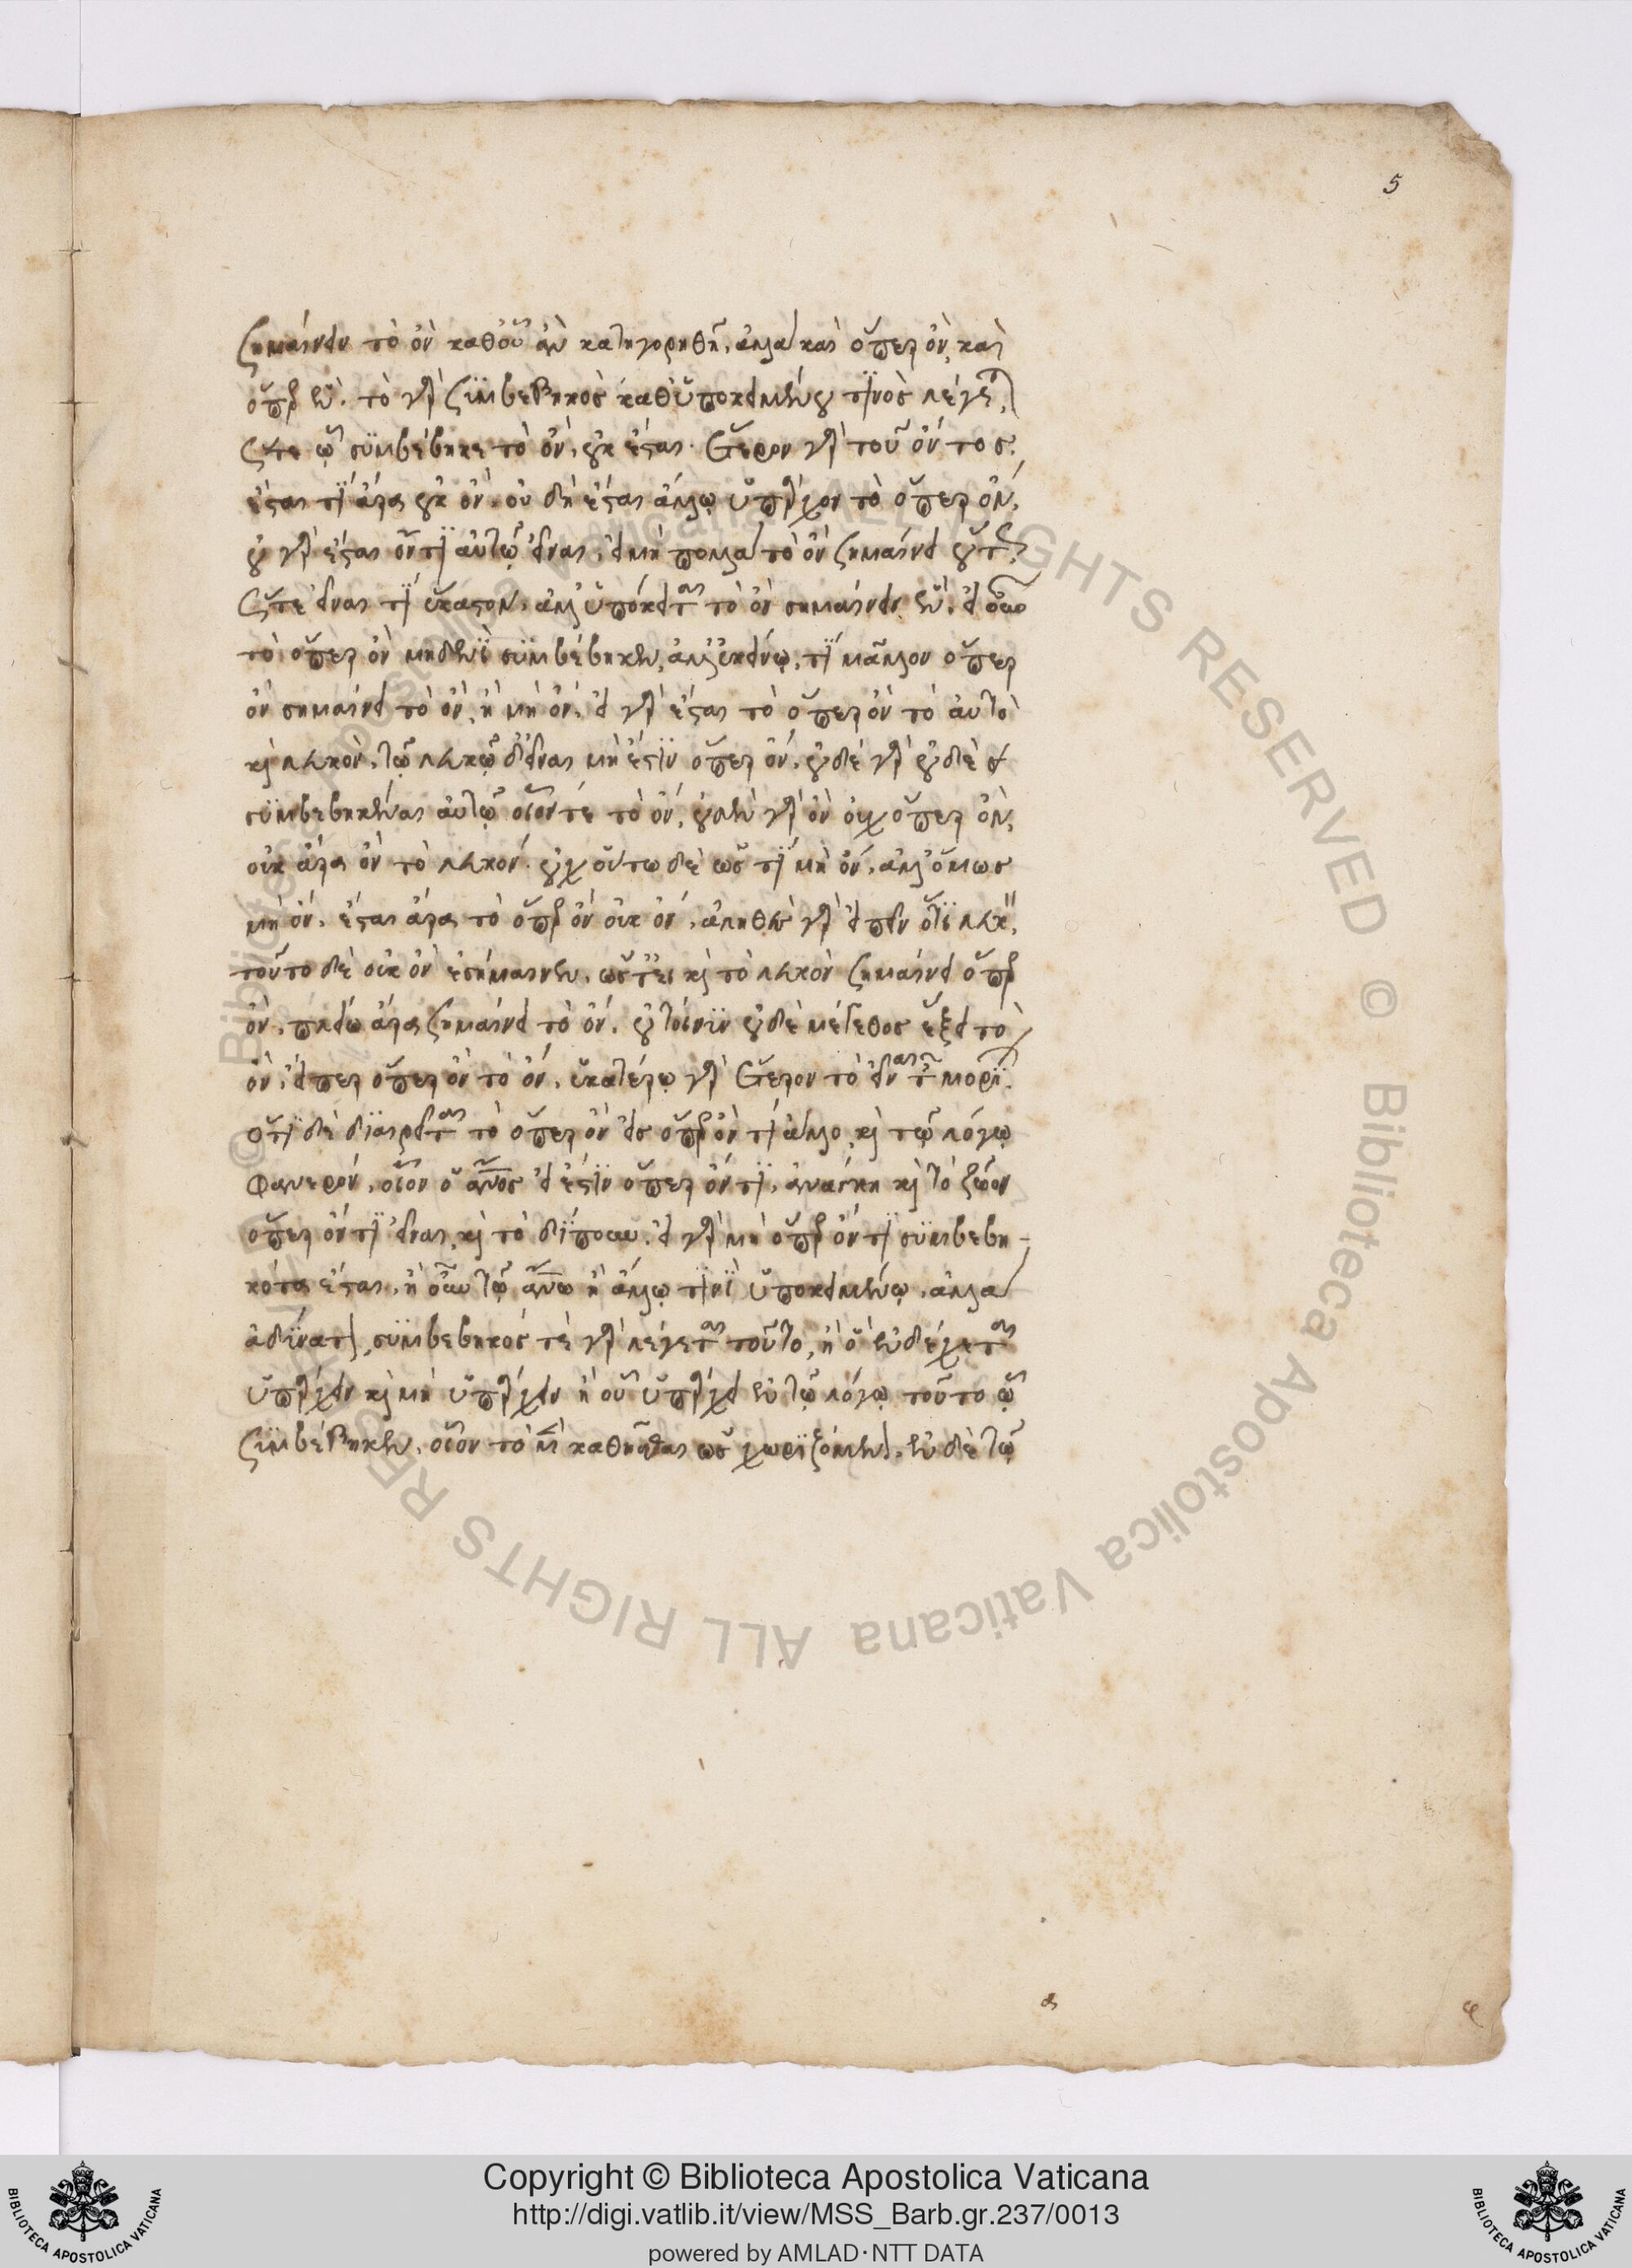 5
σημαίνειν τὸ ὂν καθ' οὗ ἂν κατηγορηθῆ, ἀλλὰ καὶ ὅπερ ὂν, καὶ
ὅπερ ἓν. τὸ γὰρ συμβεβηκὸς καθ' ὑποκειμένου τινὸς λέγεται,
ὥστε ᾧ συμβέβηκε τὸ ὂν, οὐκ ἔσται. ἕτερον γὰρ τοῦ ὄντος.
ἔσται τι ἄρα οὐκ ὄν. οὐ δὴ ἔσται ἄλλῳ ὑπάρχον τὸ ὅπερ ὄν,
οὐ γὰρ ἔσται ὄν τι αὐτῷ εἶναι, εἰ μὴ πολλὰ τὸ ὂν σημαίνει οὕτως
ὥστε εἶναι τι ἕκαστον, ἀλλ' ὑπόκειται τὸ ὂν σημαίνειν ἕν. εἰ οὖν
τὸ ὅπερ ὂν μηδενὶ συμβέβηκεν, ἀλλ' ἐκείνῳ, τί μᾶλλον ὅπερ
ὂν σημαίνει τὸ ὂν, ἢ μὴ ὄν. εἰ γὰρ ἔσται τὸ ὅπερ ὂν τὸ αὐτὸ
καὶ λευκὸν, τῷ λευκῷ δ' εἶναι μὴ ἔστιν ὅπερ ὄν, οὐδὲ γὰρ οὐδὲ
συμβεβηκέναι αὐτῷ οἷόν τε τὸ ὄν, οὐδὲν γὰρ ὂν οὐχ ὅπερ ὄν,
οὐκ ἄρα ὂν τὸ λευκόν. οὐχ οὕτω δὲ ὥς τι μὴ ὄν, ἀλλ' ὅμως
μὴ ὄν. ἔσται ἄρα τὸ ὅπερ ὂν οὐκ ὄν, ἀληθὲς γὰρ εἰπεῖν ὅτι λευκὸν,
τοῦτο δὲ οὐκ ὂν ἐσήμαινεν, ὥστ' εἰ καὶ τὸ λευκὸν σημαίνει ὅπερ
ὄν, πλείω ἄρα σημαίνει τὸ ὄν. οὐ τοίνυν οὐδὲ μέγεθος ἕξει τὸ
ὄν, εἴπερ ὅπερ ὂν τὸ ὄν. ἑκατέρῳ γὰρ ἕτερον τὸ εἶναι τῶν μορίων.
ὅτι δὲ διαιρεῖται τὸ ὅπερ ὂν εἰς ὅπερ ὄν τι ἄλλο, καὶ τῷ λόγῳ
φανερόν, οἷον ὁ ἄνος εἰ ἔστιν ὅπερ ὄν τι, ἀνάγκη καὶ τὸ ζῷον
ὅπερ ὄν τι εἶναι, καὶ τὸ δίπουν. εἰ γὰρ μὴ ὅπερ ὄν τι συμβεβη-
κότα ἔσται, ἢ οὖν τῷ ἄνω ἢ ἄλλῳ τινὶ ὑποκειμένῳ. ἀλλὰ
ἀδύνατον, συμβεβηκός τε γὰρ λέγεται τοῦτο, ἢ ὃ ἐνδέχεται
ὑπάρχειν καὶ μὴ ὑπάρχειν ἢ οὗ ὑπάρχει ἐν τῷ λόγῳ τοῦτο ᾧ
συμβέβηκεν, οἷον τὸ μὲν καθῆσθαι ὡς χωριζόμενον. ἐν δὲ τῷ
Copyright © Biblioteca Apostolica Vaticana
http://digi.vatlib.it/view/MSS_Barb.gr.237/0013
powered by AMLAD·NTT DATA
BIBLIOTECA APOSTOLICA VATICANA
BIBLIOTECA APOSTOLICA VATICANA
© Biblioteca Apostolica Vaticana ALL RIGHTS RESERVED © Biblioteca Apostolica Vaticana ALL RIGHTS RESERVED